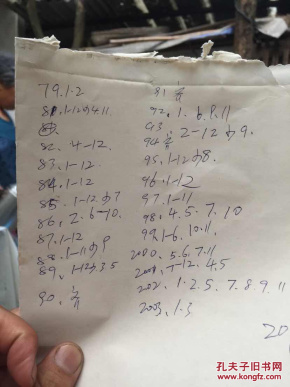 79.1.2
81.1-12少4.11
82. 4-12
83.1-12
84.1-12
85. 1-12少7
86. 2.6-10.
87.1-12
88.1-11少9
89. 1-12少3.5
90. 齐
91 齐
92. 1. 6.9.11
93. 2-12少9.
94 齐
95. 1-12少8.
96.1-12
97.1-11
98. 4.5.7.10
99.1-6.10.11.
2000. 5.6.7.11
2001. 1-12. 4.5
2002. 1.2.5.7.8.9.11
2003. 1.3
20
孔夫子旧书网
www.kongfz.com